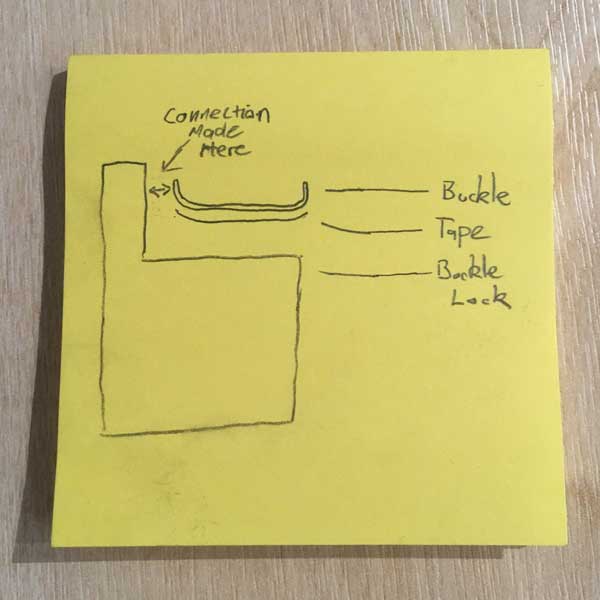 Connection
Made
Here
Buckle
Tape
Buckle
Lock